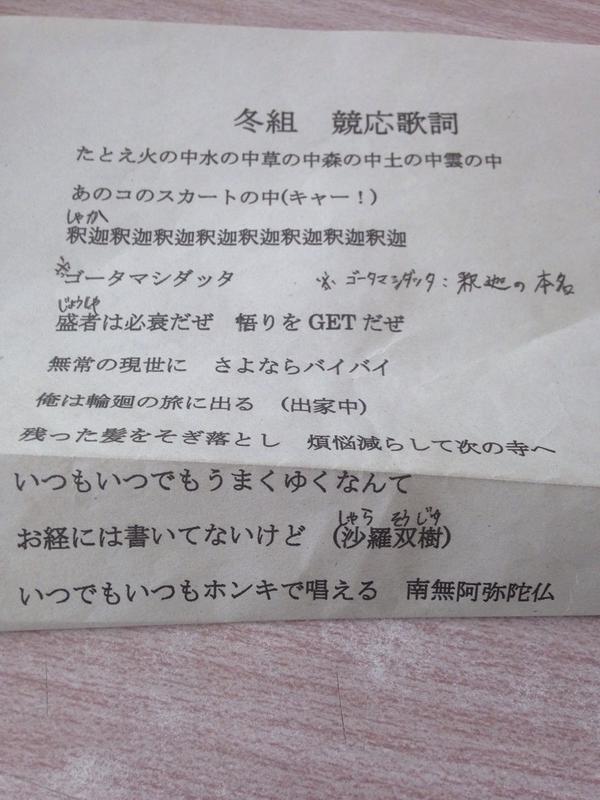 冬組　競応歌詞
たとえ火の中水の中草の中森の中土の中雲の中
あのコのスカートの中(キャー！)
しゃか
釈迦釈迦釈迦釈迦釈迦釈迦釈迦釈迦
※ゴータマシダッタ　※ゴータマシダッタ：釈迦の本名
じょうしゃ
盛者は必衰だぜ　悟りをGETだぜ
無常の現世に　さよならバイバイ
俺は輪廻の旅に出る　(出家中)
残った髪をそぎ落とし　煩悩減らして次の寺へ
いつもいつでもうまくゆくなんて
しゃら　そうじゅ
お経には書いてないけど　(沙羅双樹)
いつでもいつもホンキで唱える　南無阿弥陀仏